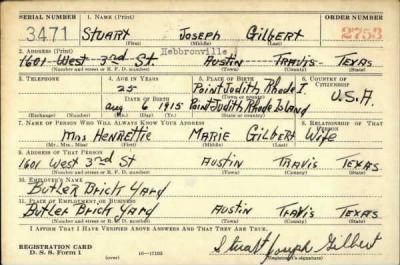 SERIAL NUMBER 1. NAME (Print) ORDER NUMBER
3471 STUART JOSEPH GILBERT 2753
(First) (Middle) (Last)
2. ADDRESS (Print) Hebbronville
1601 West 3rd St. AUSTIN TRAVIS TEXAS
(Number and street or R. F. D. number) (Town) (County) (State)
3. TELEPHONE 4. AGE IN YEARS 5. PLACE OF BIRTH 6. COUNTRY OF CITIZENSHIP
25 Point Judith Rhode I.
DATE OF BIRTH
Aug 6 1915 Point Judith Rhode Island U.S.A.
(Exchange) (Number) (Mo.) (Day) (Yr.) (State or country)
7. NAME OF PERSON WHO WILL ALWAYS KNOW YOUR ADDRESS RELATIONSHIP OF THAT PERSON
Mrs Henrettie MARIE GILBERT Wife
(Mr., Mrs., Miss) (First) (Middle) (Last)
8. ADDRESS OF THAT PERSON
1601 West 3rd St AUSTIN TRAVIS TEXAS
(Number and street or R. F. D. number) (Town) (County) (State)
10. EMPLOYER'S NAME
BUTLER BRICK YARD
11. PLACE OF EMPLOYMENT OR BUSINESS
BUTLER BRICK YARD AUSTIN TRAVIS TEXAS
(Number and street or R. F. D. number) (Town) (County) (State)
I AFFIRM THAT I HAVE VERIFIED ABOVE ANSWERS AND THAT THEY ARE TRUE.
REGISTRATION CARD
D. S. S. Form 1 (over) Stuart Joseph Gilbert
(Registrant's signature)